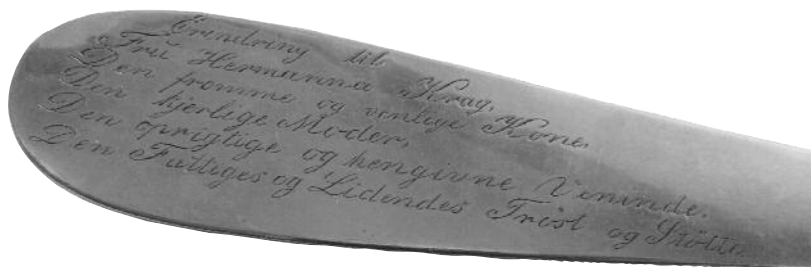 Erindring til
Frü Hermanna Krag.
Den fromme og venlige Kone.
Den kjerlige Moder.
Den oprigtige og hengivne Veninde.
Den Fattiges og Lidendes Trøst og Støtte.